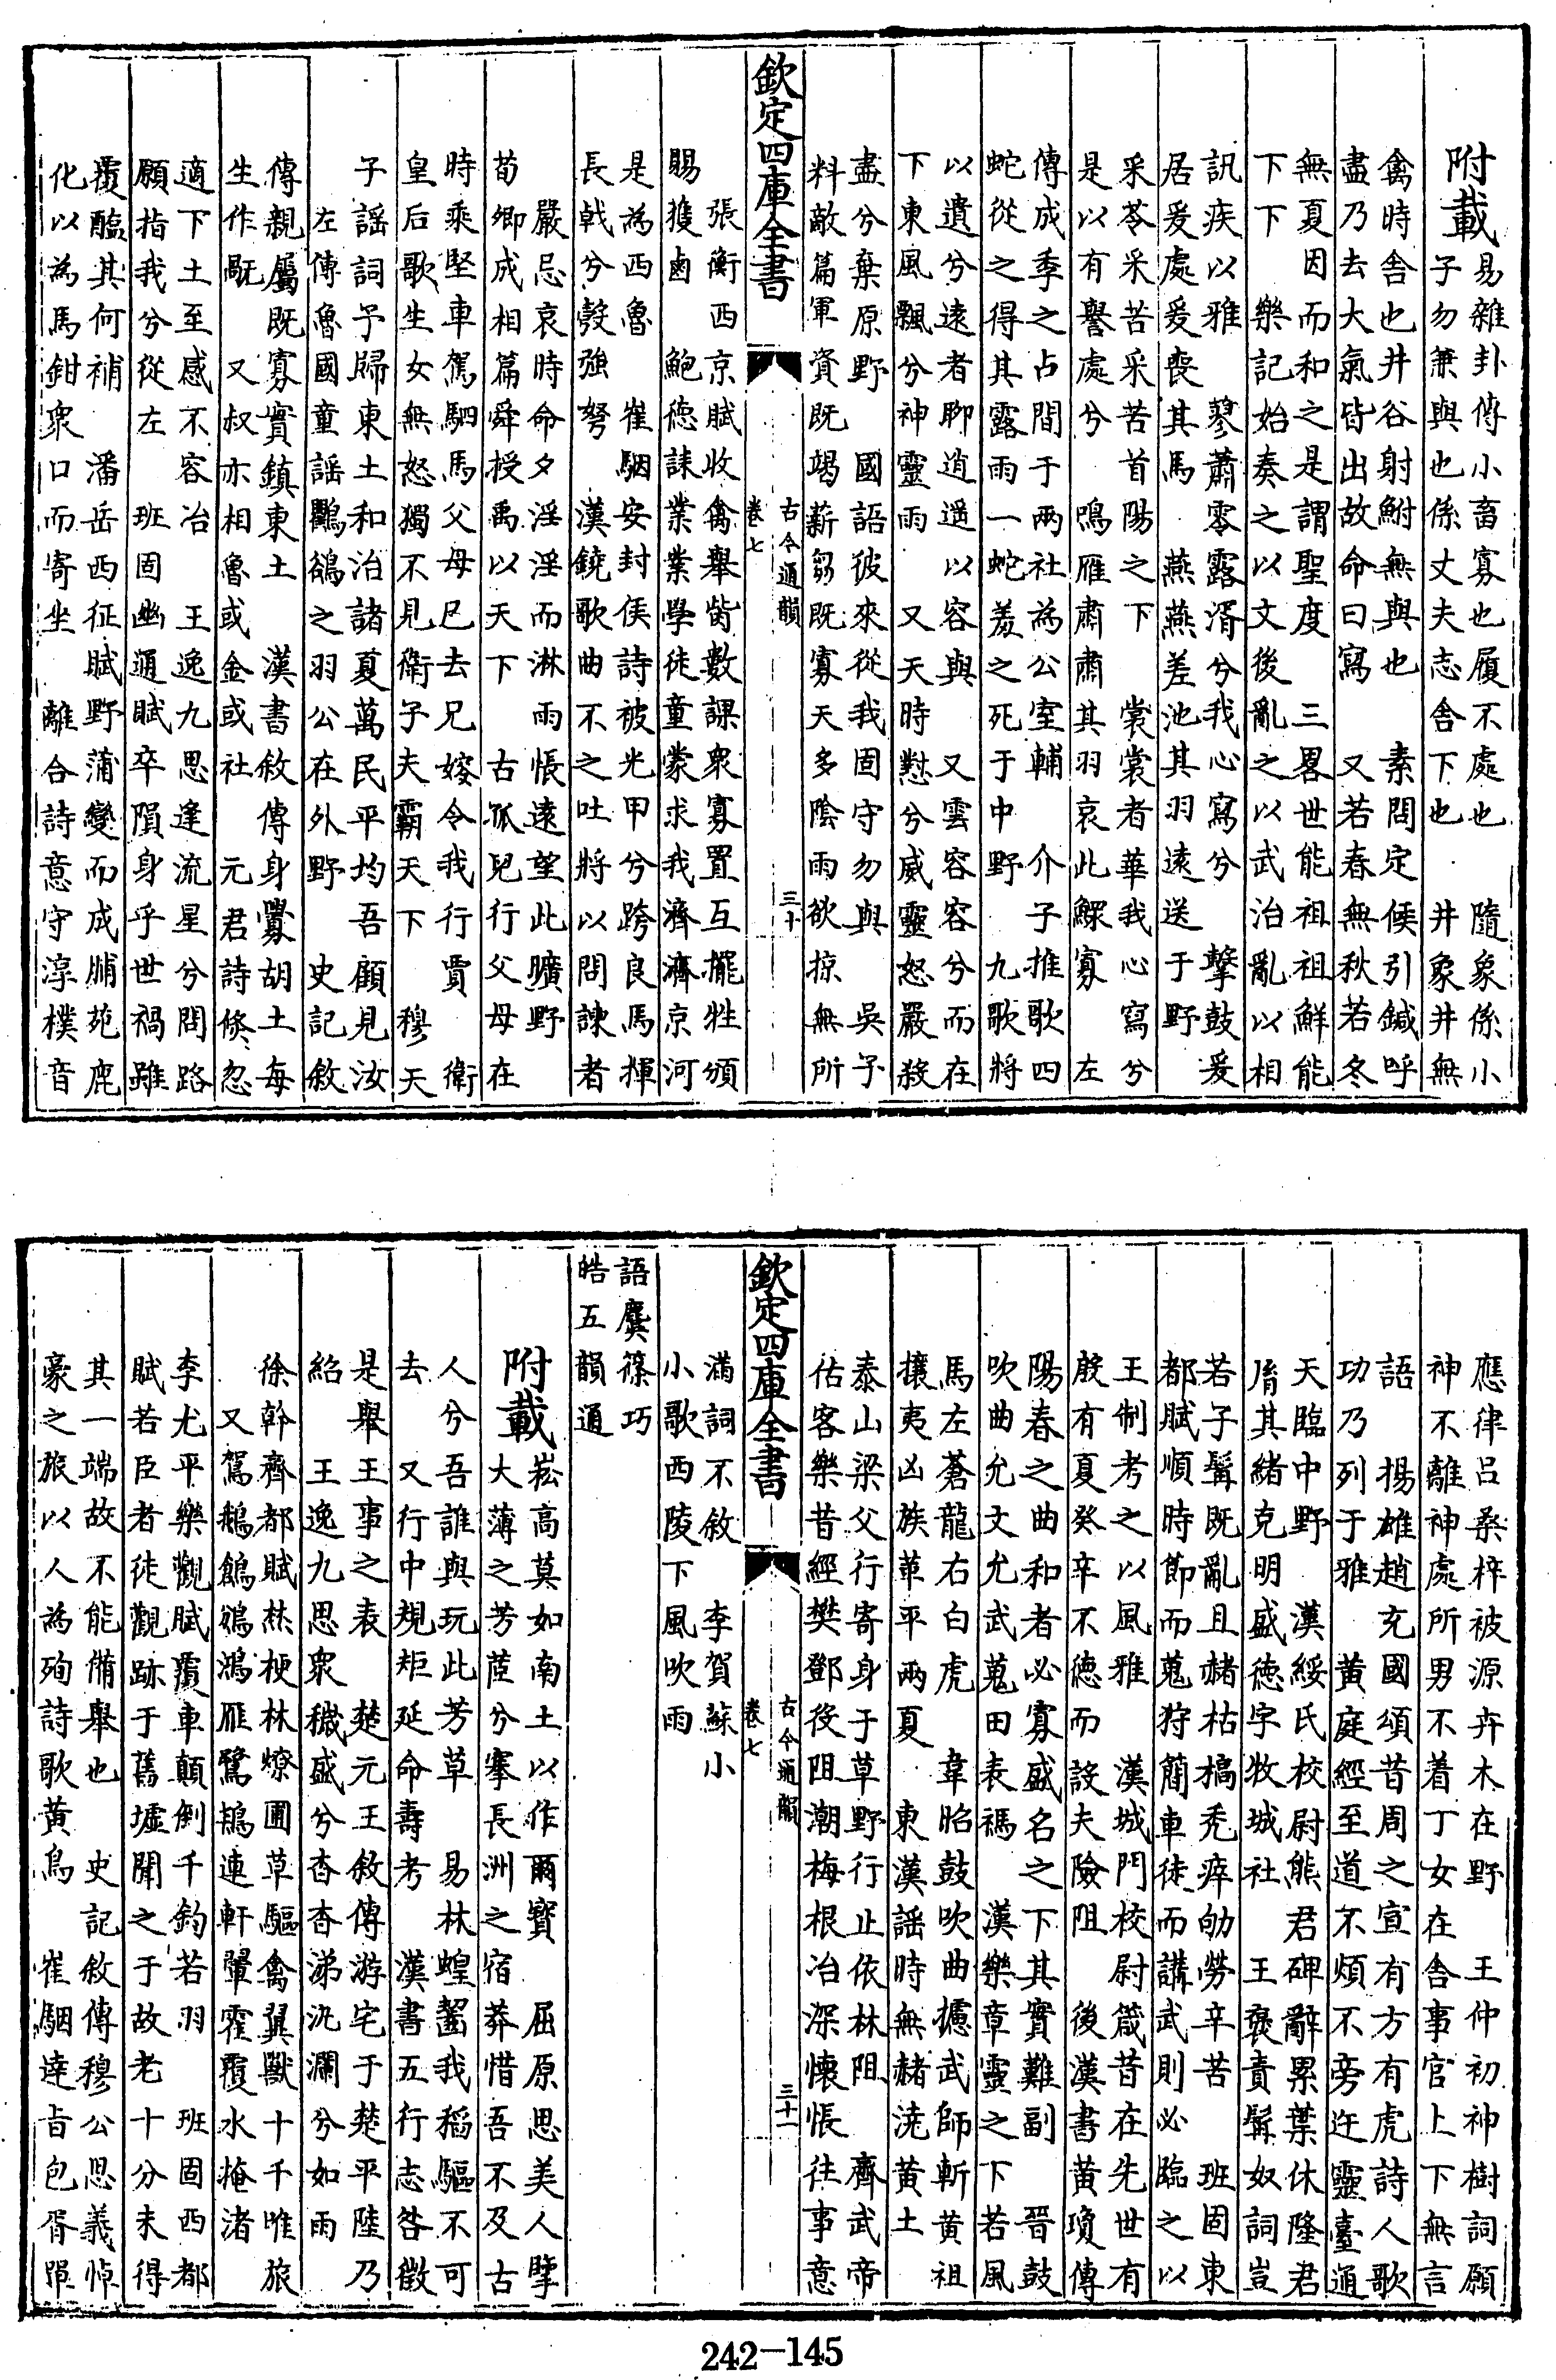 附載
易雜卦傳小畜寡也履不處也 隨象係小
子勿兼與也係丈夫志舍下也 井象井無
禽時舍也井谷射鮒無與也 素問定候引鍼呼
盡乃去大氣皆出故命曰寫 又若春無秋若冬
無夏因而和之是謂聖度 三畧世能祖祖鮮能
下下 樂記始奏之以文後亂之以武治亂以相
訊疾以雅 蓼蕭零露湑兮我心寫兮 擊鼓爰
居爰處爰喪其馬 燕燕差池其羽遠送于野
采苓采苦采苦首陽之下 裳裳者華我心寫兮
是以有譽處兮 鴻雁肅肅其羽哀此鰥寡 左
傳成季之占間于兩社為公室輔 介子推歌四
蛇從之得其露雨一蛇羞之死于中野 九歌將
以遺兮遠者聊逍遥以容與 又雲容容兮而在
下東風飄兮神靈雨 又天時懟兮威靈怒嚴殺
盡兮棄原野 國語彼來從我固守勿與 吳子
料敵篇軍資既竭薪芻既寡天多陰雨欲掠無所
欽定四庫全書
古今通韻
卷七
三十
張衡西京賦收禽舉胔數課衆寡置互擺牲頒
賜獲鹵 鮑徳誄業業學徒童蒙求我濟濟京河
是為西魯 崔駰安封侯詩被光甲兮跨良馬揮
長戟兮彀強弩 漢鐃歌曲不之吐將以問諫者
嚴忌哀時命夕淫淫而淋雨悵遠望此曠野
荀卿成相篇舜授禹以天下 古孤兒行父母在
時乘堅車駕駟馬父母已去兄嫁令我行賈 衛
皇后歌生女無怒獨不見衛子夫霸天下 穆天
子謡詞予歸東土和治諸夏萬民平均吾顧見汝
左傳魯國童謡鸜鵒之羽公在外野 史記敘
傳親屬既寡實鎮東土 漢書敘傳身釁胡土每
生作瓾 又叔亦相魯或金或社 元君詩倏忽
適下土至感不容冶 王逸九思逢流星兮問路
願指我兮從左 班固幽通賦卒隕身乎世禍雖
覆醢其何補 潘岳西征賦野蒲變而成脯苑鹿
化以為馬鉗衆口而寄坐 離合詩意守淳樸音
應律吕桑梓被源卉木在野 王仲初神樹詞願
神不離神處所男不着丁女在舍事官上下無言
語 揚雄趙充國頌昔周之宣有方有虎詩人歌
功乃列于雅 黄庭經至道不煩不旁迕靈臺通
天臨中野 漢綏氏校尉熊君碑辭累葉休隆君
脩其緒克明盛徳字牧城社 王襃責髯奴詞豈
若子髯既亂且赭枯槁秃瘁劬勞辛苦 班固東
都賦順時節而蒐狩簡車徒而講武則必臨之以
王制考之以風雅 漢城門校尉箴昔在先世有
殷有夏癸辛不徳而設夫險阻 後漢書黄瓊傳
陽春之曲和者必寡盛名之下其實難副 晉鼓
吹曲允文允武蒐田表禡 漢樂章靈之下若風
馬左蒼龍右白虎 韋昭鼓吹曲攄武師斬黄祖
攘夷凶族革平兩夏 東漢謡時無赭澆黄土
泰山梁父行寄身于草野行止依林阻 齊武帝
估客樂昔經樊鄧役阻潮梅根冶深懐悵往事意
欽定四庫全書
古今通韻
卷七
三十一
滿詞不敘 李賀蘇小
小歌西陵下風吹雨
語麌篠巧
皓五韻通
附載
崧高莫如南土以作爾寳 屈原思美人擥
大薄之芳茝兮搴長洲之宿莽惜吾不及古
人兮吾誰與玩此芳草 易林蝗齧我稻驅不可
去 又行中規矩延命壽考 漢書五行志咎徵
是舉王事之表 楚元王敘傳游宅于楚平陸乃
紹 王逸九思衆穢盛兮杳杳涕氿瀾兮如雨
徐幹齊都賦焚梗林燎圃草驅禽翼獸十千惟旅
又鴐鵝鶬鴰鴻雁鷺鴇連軒翬霍覆水掩渚
李尤平樂觀賦覆車顛倒千鈞若羽 班固西都
賦若臣者徒觀跡于舊墟聞之于故老十分未得
其一端故不能備舉也 史記敘傳穆公思義悼
豪之旅以人為殉詩歌黄鳥 崔駰達旨包胥單
242—145